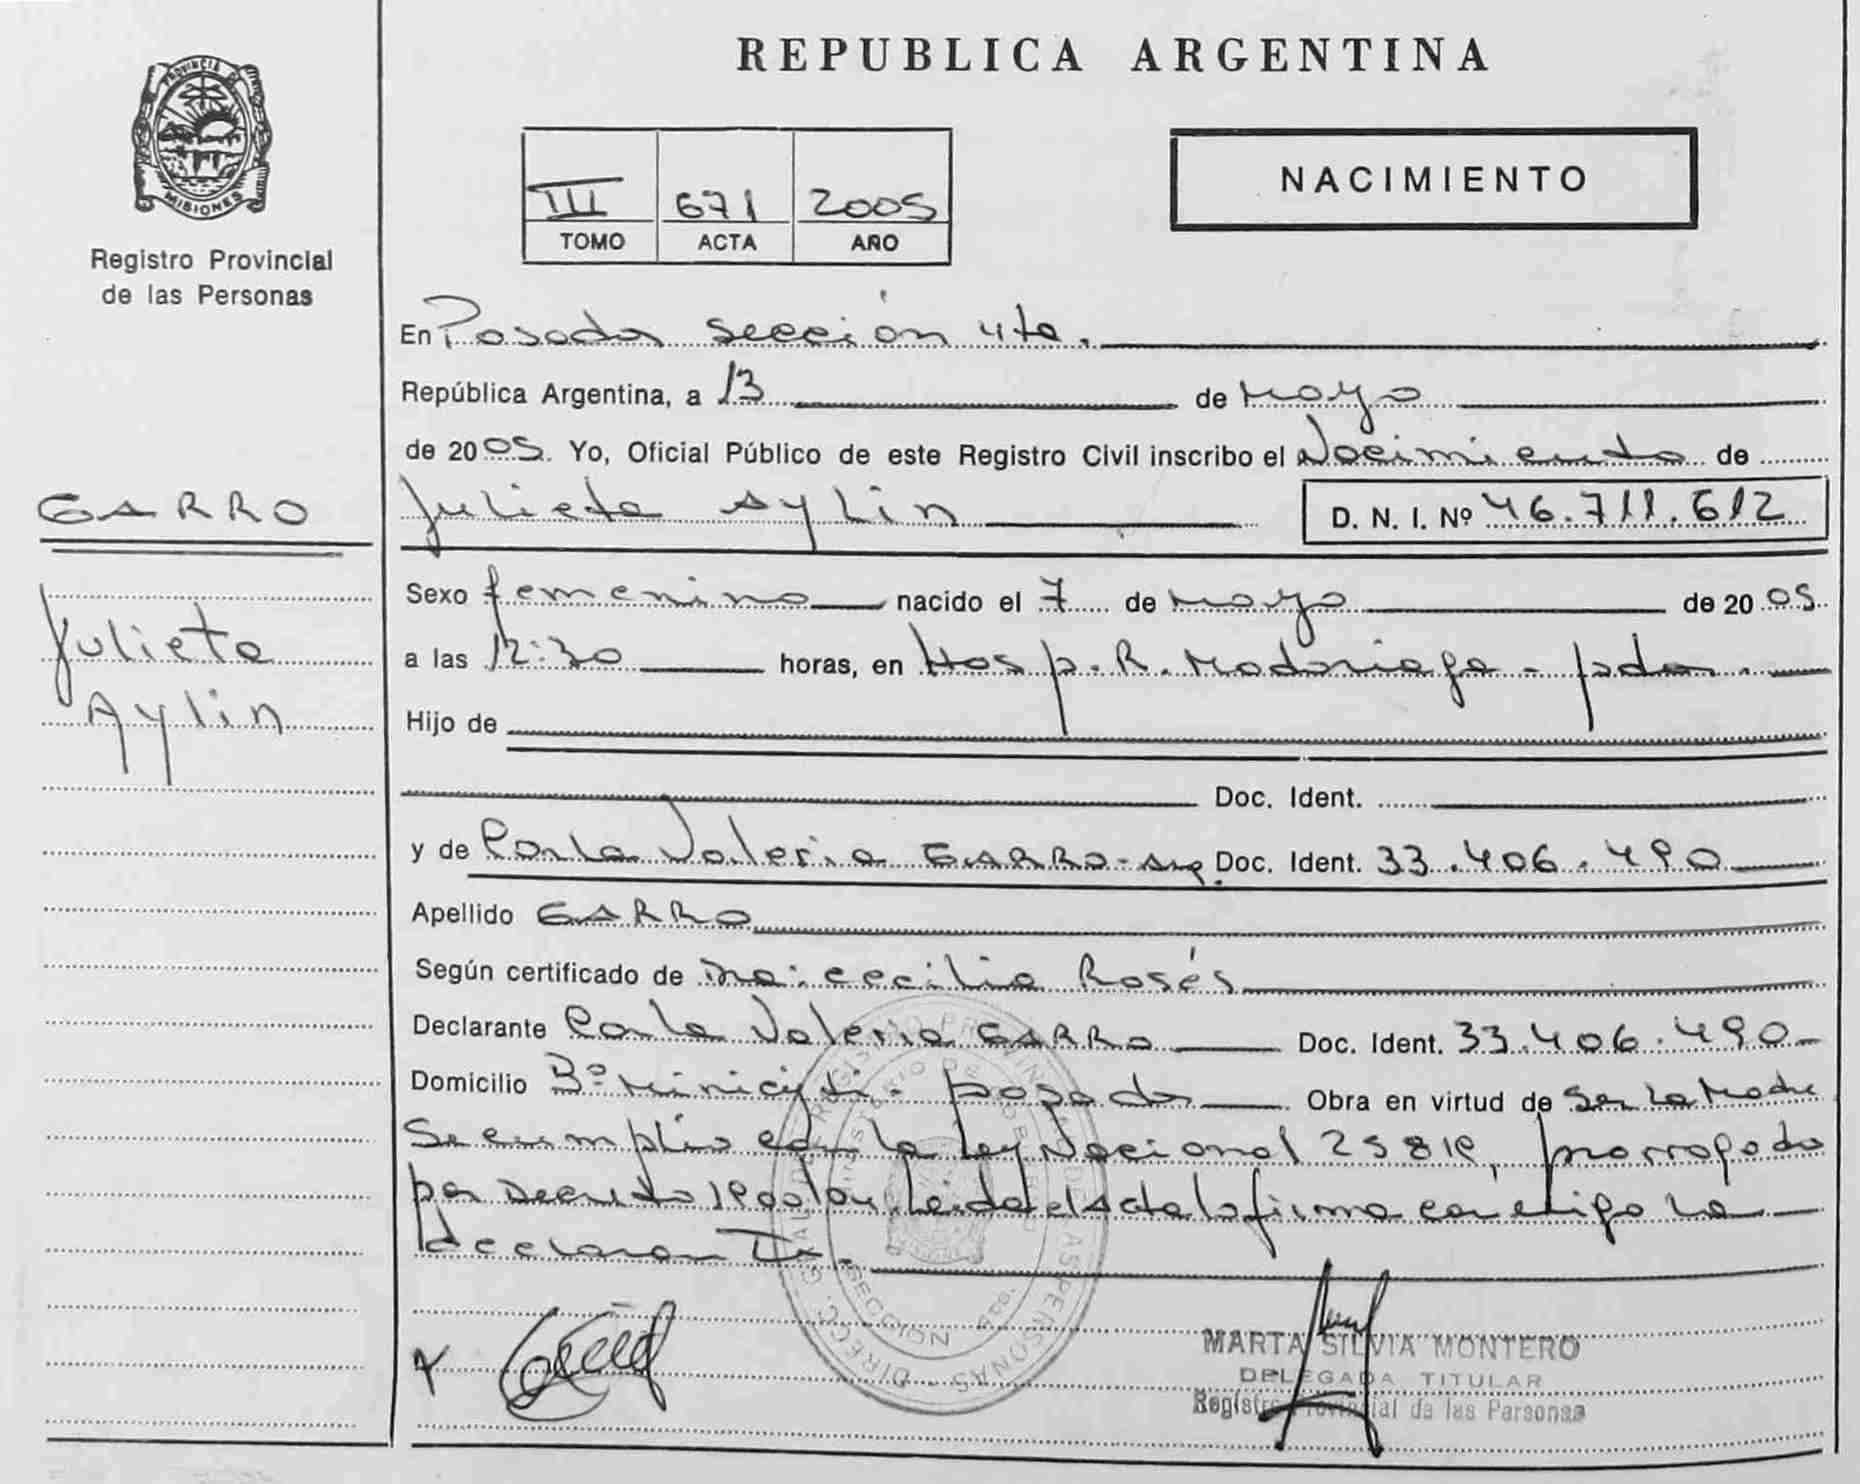 PROVINCIA DE
MISIONES
Registro Provincial
de las Personas
GARRO
Julieta
Aylin
REPUBLICA ARGENTINA
III 671 2005
TOMO ACTA AÑO
NACIMIENTO
En Posadas sección 4ta.
República Argentina, a 13 de mayo
de 2005. Yo, Oficial Público de este Registro Civil inscribo el Nacimiento de
Julieta Aylin D. N. I. Nº 46.711.612
Sexo femenino nacido el 7 de mayo de 2005.
a las 12:30 horas, en Hosp. R. Madariaga - pdas.
Hijo de
Doc. Ident.
y de Carla Valeria GARRO - arg. Doc. Ident. 33.406.490
Apellido GARRO
Según certificado de Dra: cecilia Rosés
Declarante Carla Valeria GARRO Doc. Ident. 33.406.490
Domicilio Bº posadas Obra en virtud de Ser La Madre
Se cumplió con la Ley Nacional 25819, prorrogada
por Decreto 1900/04. Leída el Acta la firma conmigo la
declarante.
MARTA SILVIA MONTERO
DELEGADA TITULAR
Registro Provincial de las Personas